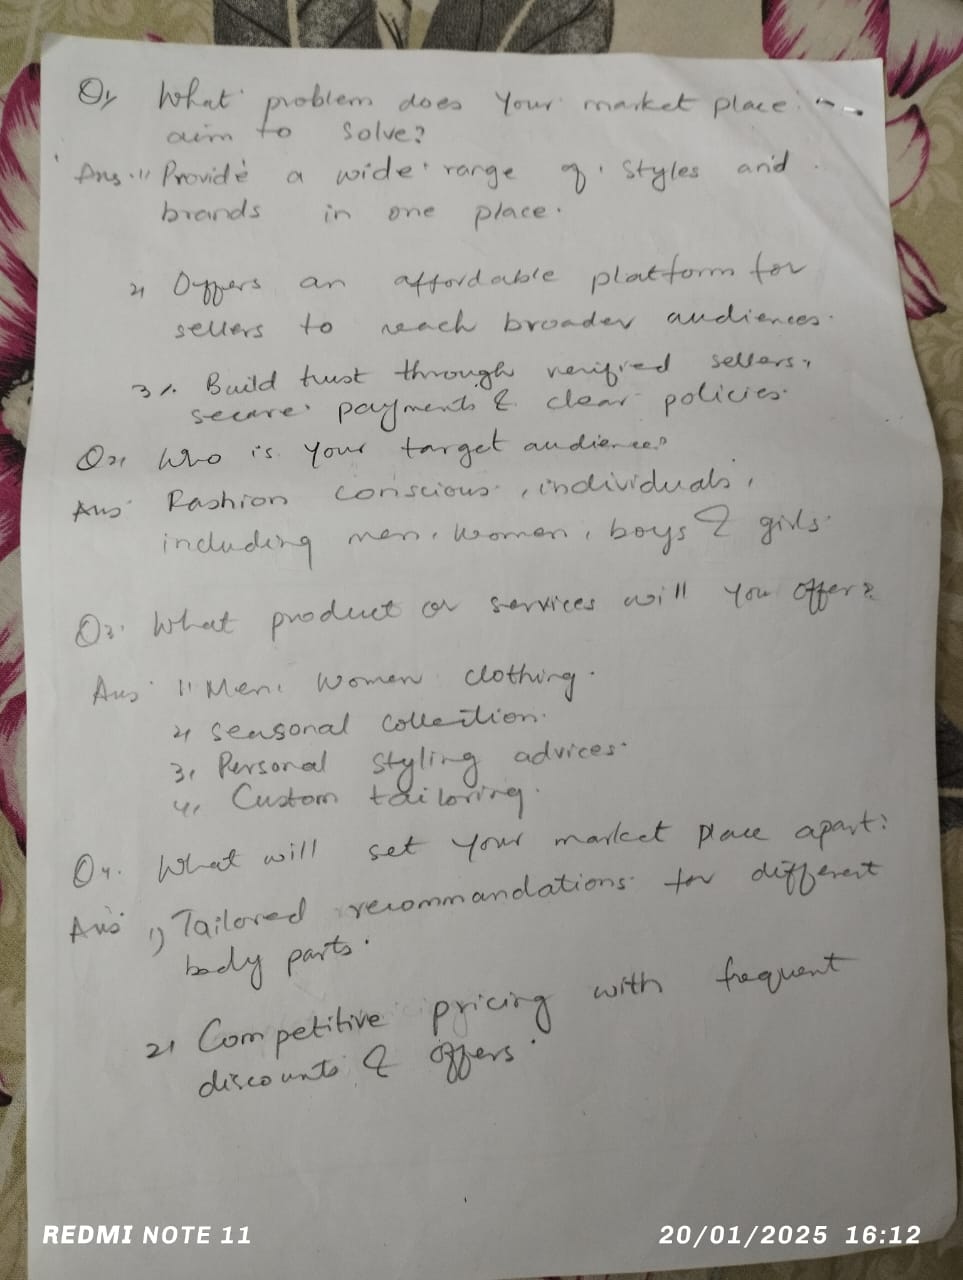 Q1, What problem does your market place
aim to solve?
Ans. 1, Provide a wide range of styles and
brands in one place.
2, Offers an affordable platform for
sellers to reach broader audiences.
3, Build trust through verified sellers,
secure payments & clear policies.
Q2, Who is your target audience?
Ans Fashion conscious, individuals,
including men, women, boys & girls.
Q3. What product or services will you offer?
Ans 1, Men, Women clothing.
2, Seasonal collection.
3, Personal styling advices.
4, Custom tailoring.
Q4. What will set your market place apart?
Ans 1, Tailored recommandations for different
body parts.
2, Competitive pricing with frequent
discounts & offers.
REDMI NOTE 11
20/01/2025 16:12